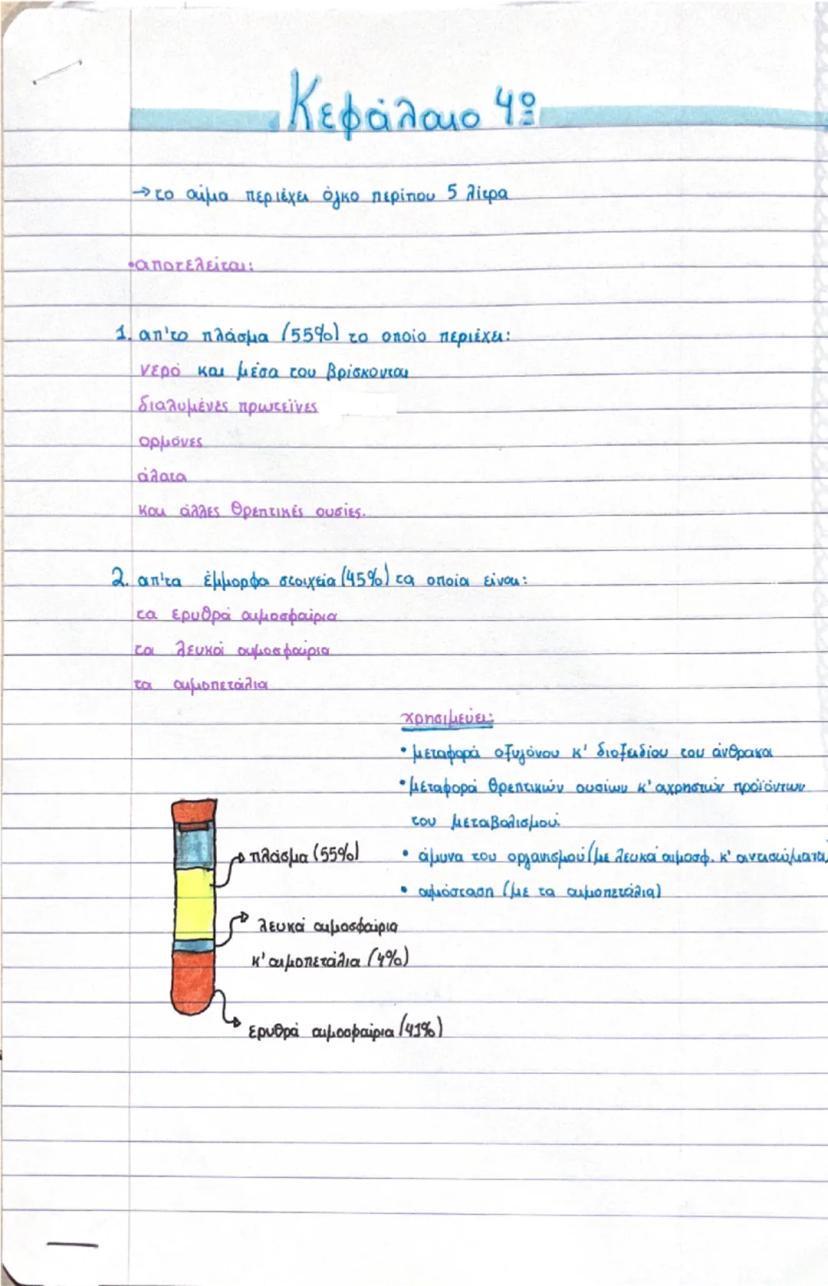 Κεφάλαιο 4ο
→ το αίμα περιέχει όγκο περίπου 5 λίτρα
•αποτελείται:
1. απ'το πλάσμα (55%) το οποίο περιέχει:
νερό και μέσα του βρίσκονται
διαλυμένες πρωτεΐνες
ορμόνες
άλατα
και άλλες θρεπτικές ουσίες.
2. απ'τα έμμορφα στοιχεία (45%) τα οποία είναι:
τα ερυθρά αιμοσφαίρια
τα λευκά αιμοσφαίρια
τα αιμοπετάλια
χρησιμεύει:
• μεταφορά οξυγόνου κ' διοξειδίου του άνθρακα
• μεταφορά θρεπτικών ουσίων κ' αχρηστών προϊόντων
του μεταβολισμού.
• άμυνα του οργανισμού (με λευκά αιμοσφ. κ' αντισώματα)
• αιμόσταση (με τα αιμοπετάλια)
πλάσμα (55%)
λευκά αιμοσφαίρια
κ' αιμοπετάλια (4%)
ερυθρά αιμοσφαίρια (41%)